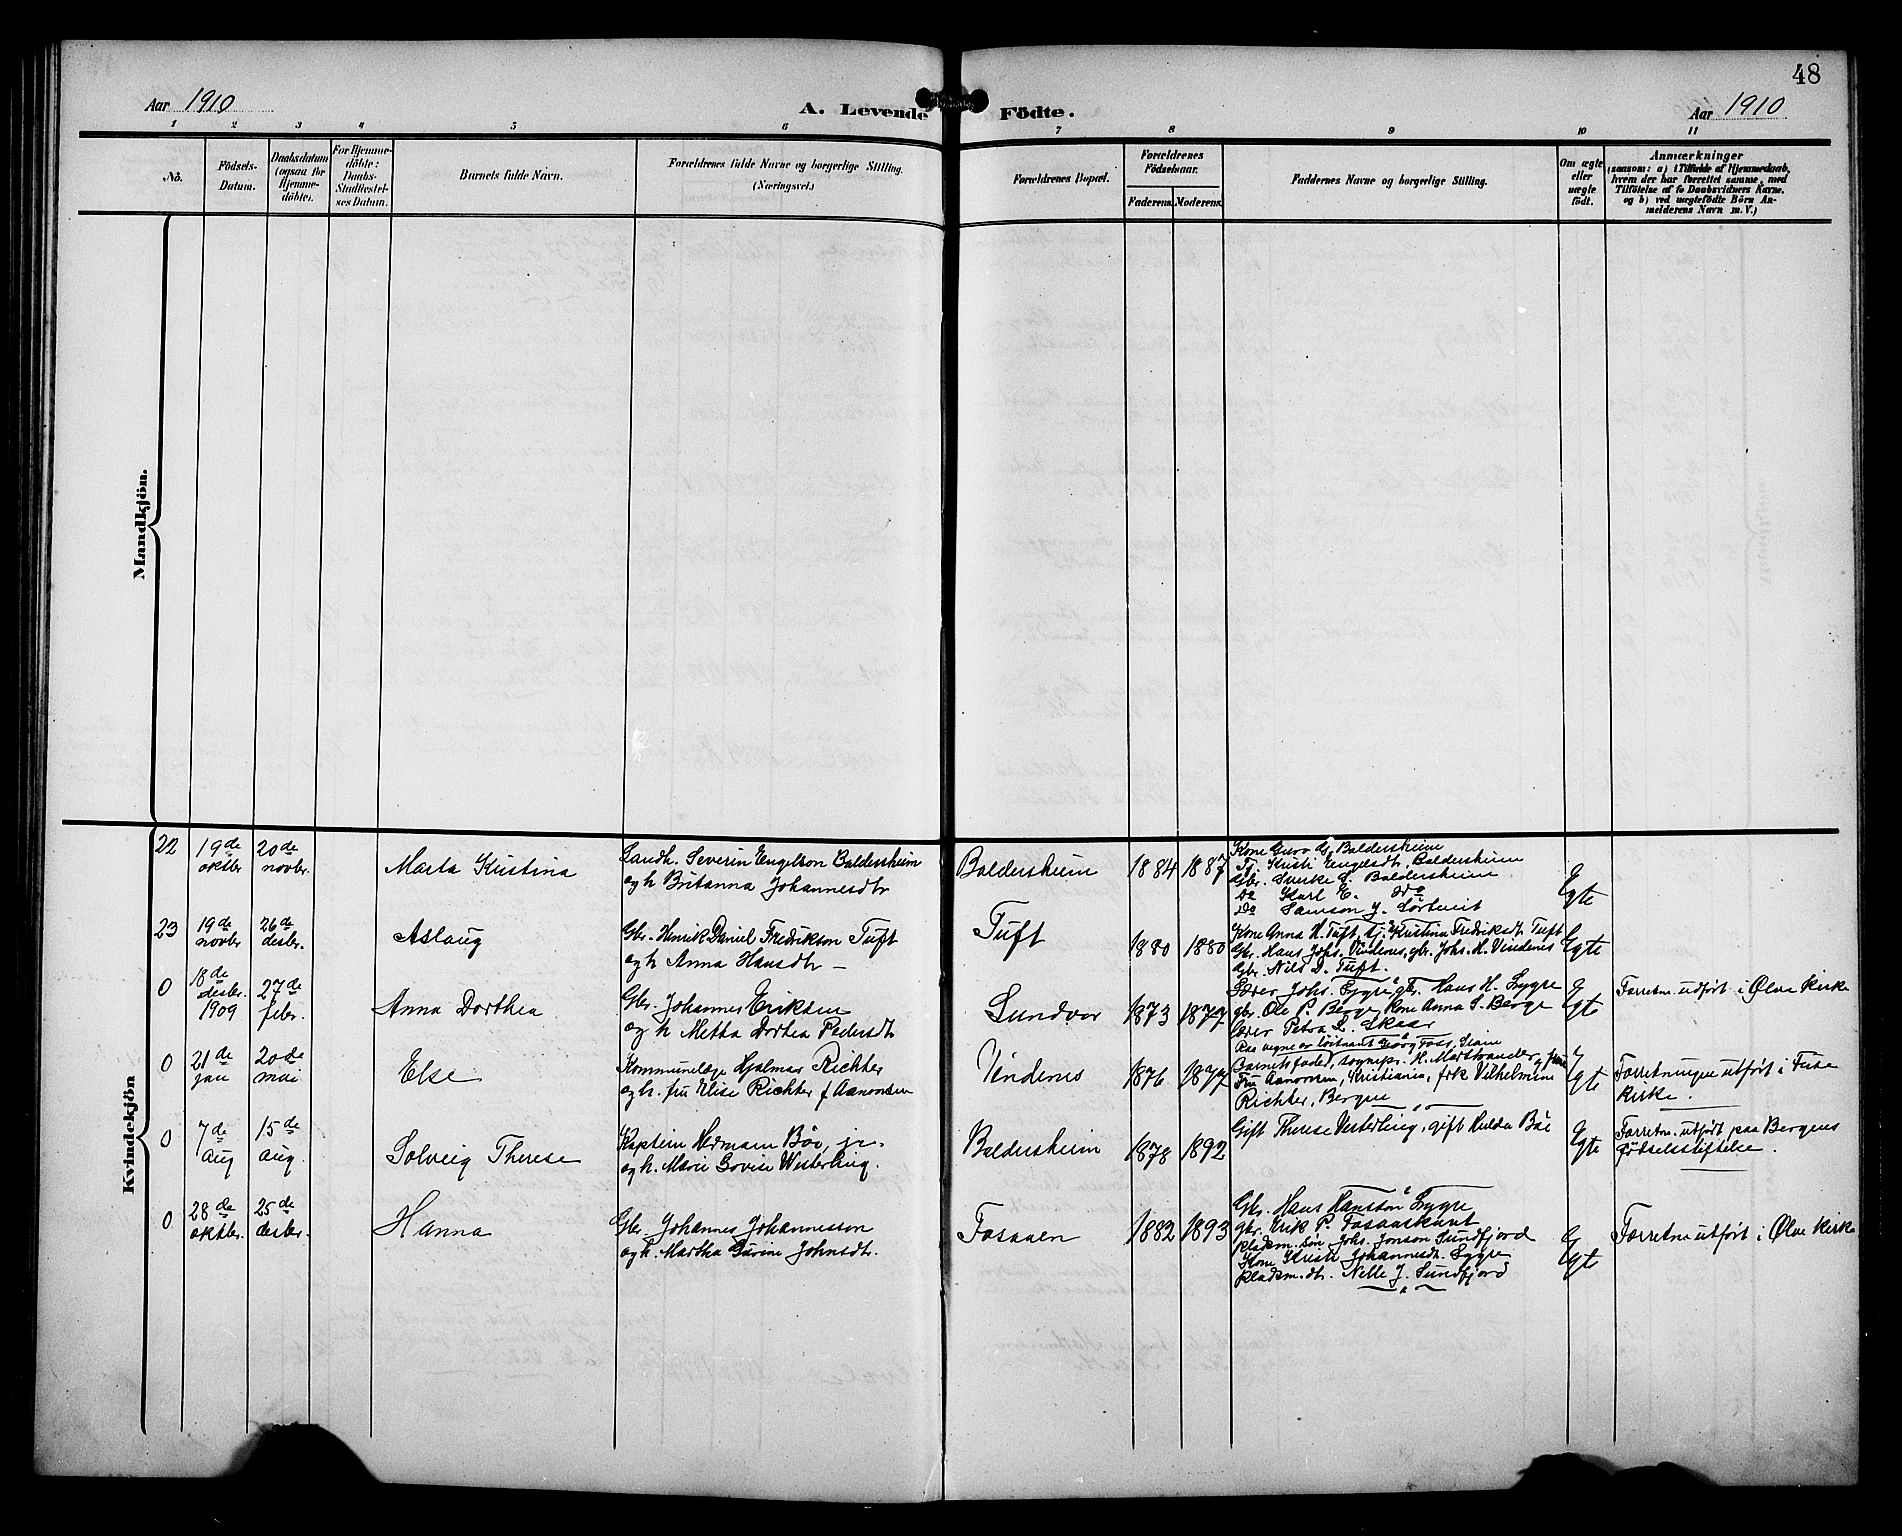 48
Aar 1910
A. Levende Födte.
Aar 1910
1 2 3 4 5 6 7 8 9 10 11
No.
Födsels-
Datum.
Daabsdatum
(ogsaa for
Hjemme-
döbte).
For Hjemme-
döbte:
Daabs-
Stadfæstel-
ses Datum.
Barnets fulde Navn.
Forældrenes fulde Navne og borgerlige Stilling.
(Næringsvei.)
Forældrenes Bopæl.
Forældrenes
Födselsaar.
Faderens. Moderens.
Faddernes Navne og borgerlige Stilling.
Om ægte
eller
uægte
født.
Anmærkninger
(saasom: a) i Tilfælde af Hjemmedaab,
hvem der har forrettet samme, med
Tilföielse af to Daabsvidners Navne,
og b) ved uægtefödte Börn An-
melderens Navn m. V.)
Mandkjön.
Kvindekjön
22
19de
oktbr
20de
novbr.
Marta Kristina
Landh. Severin Engelson Baldersheim
og h Britanna Johannesdtr
Baldersheim
1884 1887
Kone Guro G. Baldersheim
Tj. Kristi Engelsdtr. Baldersheim
Gbr. Sverke S. Baldersheim
Do Karl E. do
Do Samson J. Sörtveit
Egte
23
19de
novbr
26de
desbr.
Aslaug
Gbr. Henrik Daniel Fredrikson Tuft
og h Anna Hansdtr
Tuft
1880 1880
Kone Anna H. Tuft, tj. Kristina Fredriksdtr Tuft
Gbr. Hans Johs. Vindenes, gbr. Johs. H. Vindenes
Gbr. Nils D. Tuft.
Egte
0
18de
desbr.
1909
27de
febr.
Anna Dorthea
Gbr. Johannes Eriksen
og h Metta Dortea Pedersdtr
Sundvor
1873 1877
Lærer Johs. Lygre, gbr. Hans H. Lygre
gbr. Ole P. Berge, kone Anna S. Berge
Lærer Petra L. Skaar
Egte
Forretn. utført i Ølve kirke
0
21de
jan
20de
mai
Else
Kommunelæge Hjalmar Richter
og h. fru Elise Richter f Aanonsen
Vindenes
1876 1877
Paa vegne av løitnant Georg Foss,
Barnets fader, sognepr. H. Marstrander og frue
Fru Aanonsen, Kristiania, frk Vilhelmine
Richter, Bergen
Egte
Forretningen utført i Fuse
kirke.
0
7de
aug
15de
aug.
Solveig Therese
Kaptein Herman Böe, jr.
og h. Marie Lovise Westerling.
Baldersheim
1878 1892
Gift Therese Vesterling, gift Hulda Böe
Egte
Forretn. utført paa Bergens
fødselsstiftelse.
0
28de
oktbr.
25de
desbr.
Hanna
Gbr. Johannes Johannesson
og h. Martha Gurine Johnsdtr.
Fosaaen
1882 1893
Gbr. Hans Hansson Lygre
gbr. Erik P. Fosaaskaret
pladsm. søn Johs. Jonson Sundfjord
Kone Kristi Johannesdtr. Lygre
pladsm.dtr. Nelle J. Sundfjord
Egte
Forretn utført i Ølve kirke